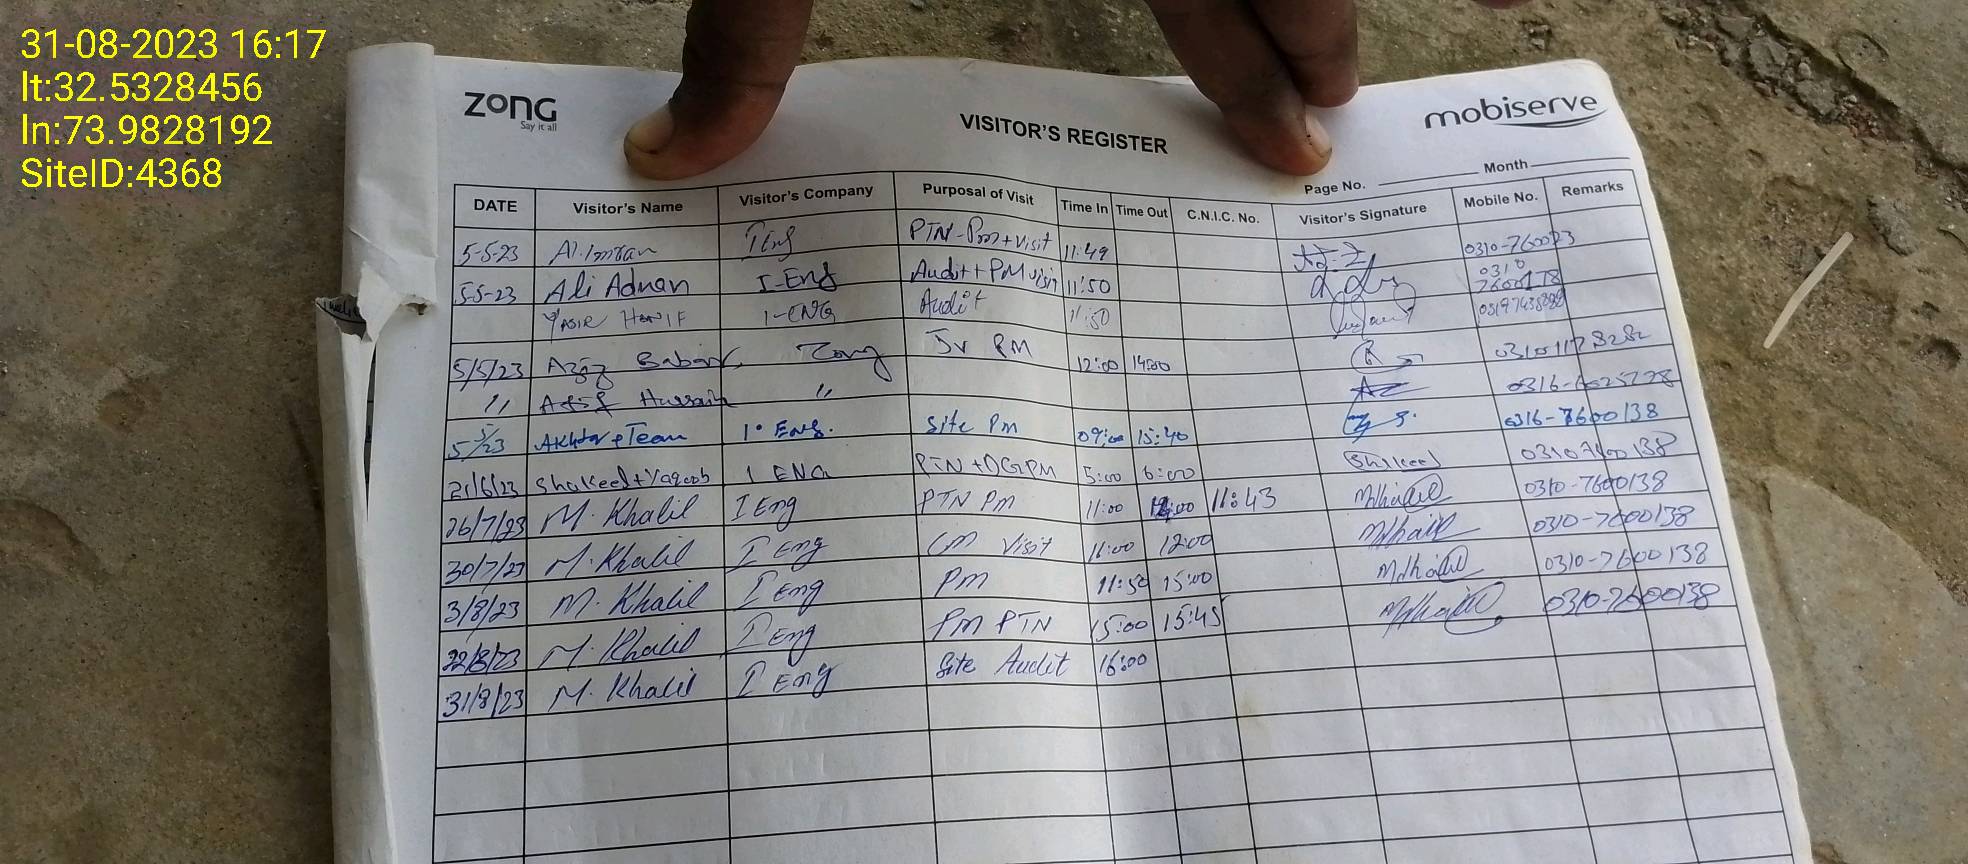 31-08-2023 16:17
lt:32.5328456
ln:73.9828192
SiteID:4368
zong
Say it all
VISITOR'S REGISTER
mobiserve
Page No. Month
DATE Visitor's Name Visitor's Company Purposal of Visit Time In Time Out C.N.I.C. No. Visitor's Signature Mobile No. Remarks
5-5-23 Al.Imran I Eng PTN-Pm+visit 11:49
5-5-23 Ali Adnan I-Eng Audit+PM visit 11:50
I-ENG Audit 11:50
5/5/23 Babar Zong PM 12:00 14:00
" Hussain "
Akhtar+Team I.Eng. Site Pm 09:00 15:40 0316-7600138
21/6/23 Shakeel+Yaqoob I ENG PTN+DG PM 5:00 6:00 Shakeel 03107600138
26/7/23 M. Khalil I Eng PTN PM 11:00 11:43 0310-7600138
30/7/23 M. Khalil I Eng CM Visit 11:00 12:00 0310-7600138
3/8/23 M. Khalil I Eng PM 11:50 15:00 0310-7600138
22/8/23 M. Khalil I Eng PM PTN 15:00 15:45 0310-7600138
31/8/23 M. Khalil I Eng Site Audit 16:00